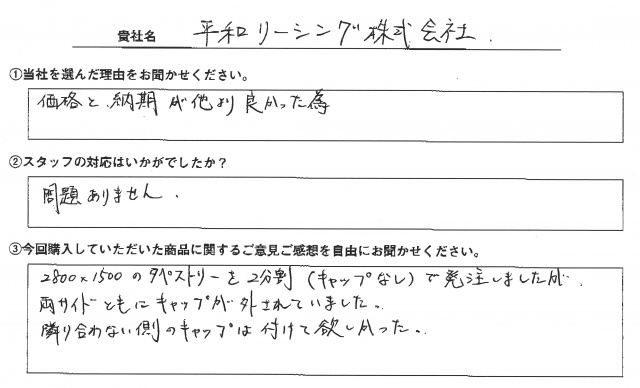 貴社名 平和リーシング株式会社.
①当社を選んだ理由をお聞かせください。
価格と、納期が他より良かった為
②スタッフの対応はいかがでしたか？
問題ありません.
③今回購入していただいた商品に関するご意見ご感想を自由にお聞かせください。
2800×1500のタペストリーを2分割(キャップなし)で発注しましたが、
両サイドともにキャップが外されていました。
隣り合わない側のキャップは付けて欲しかった。